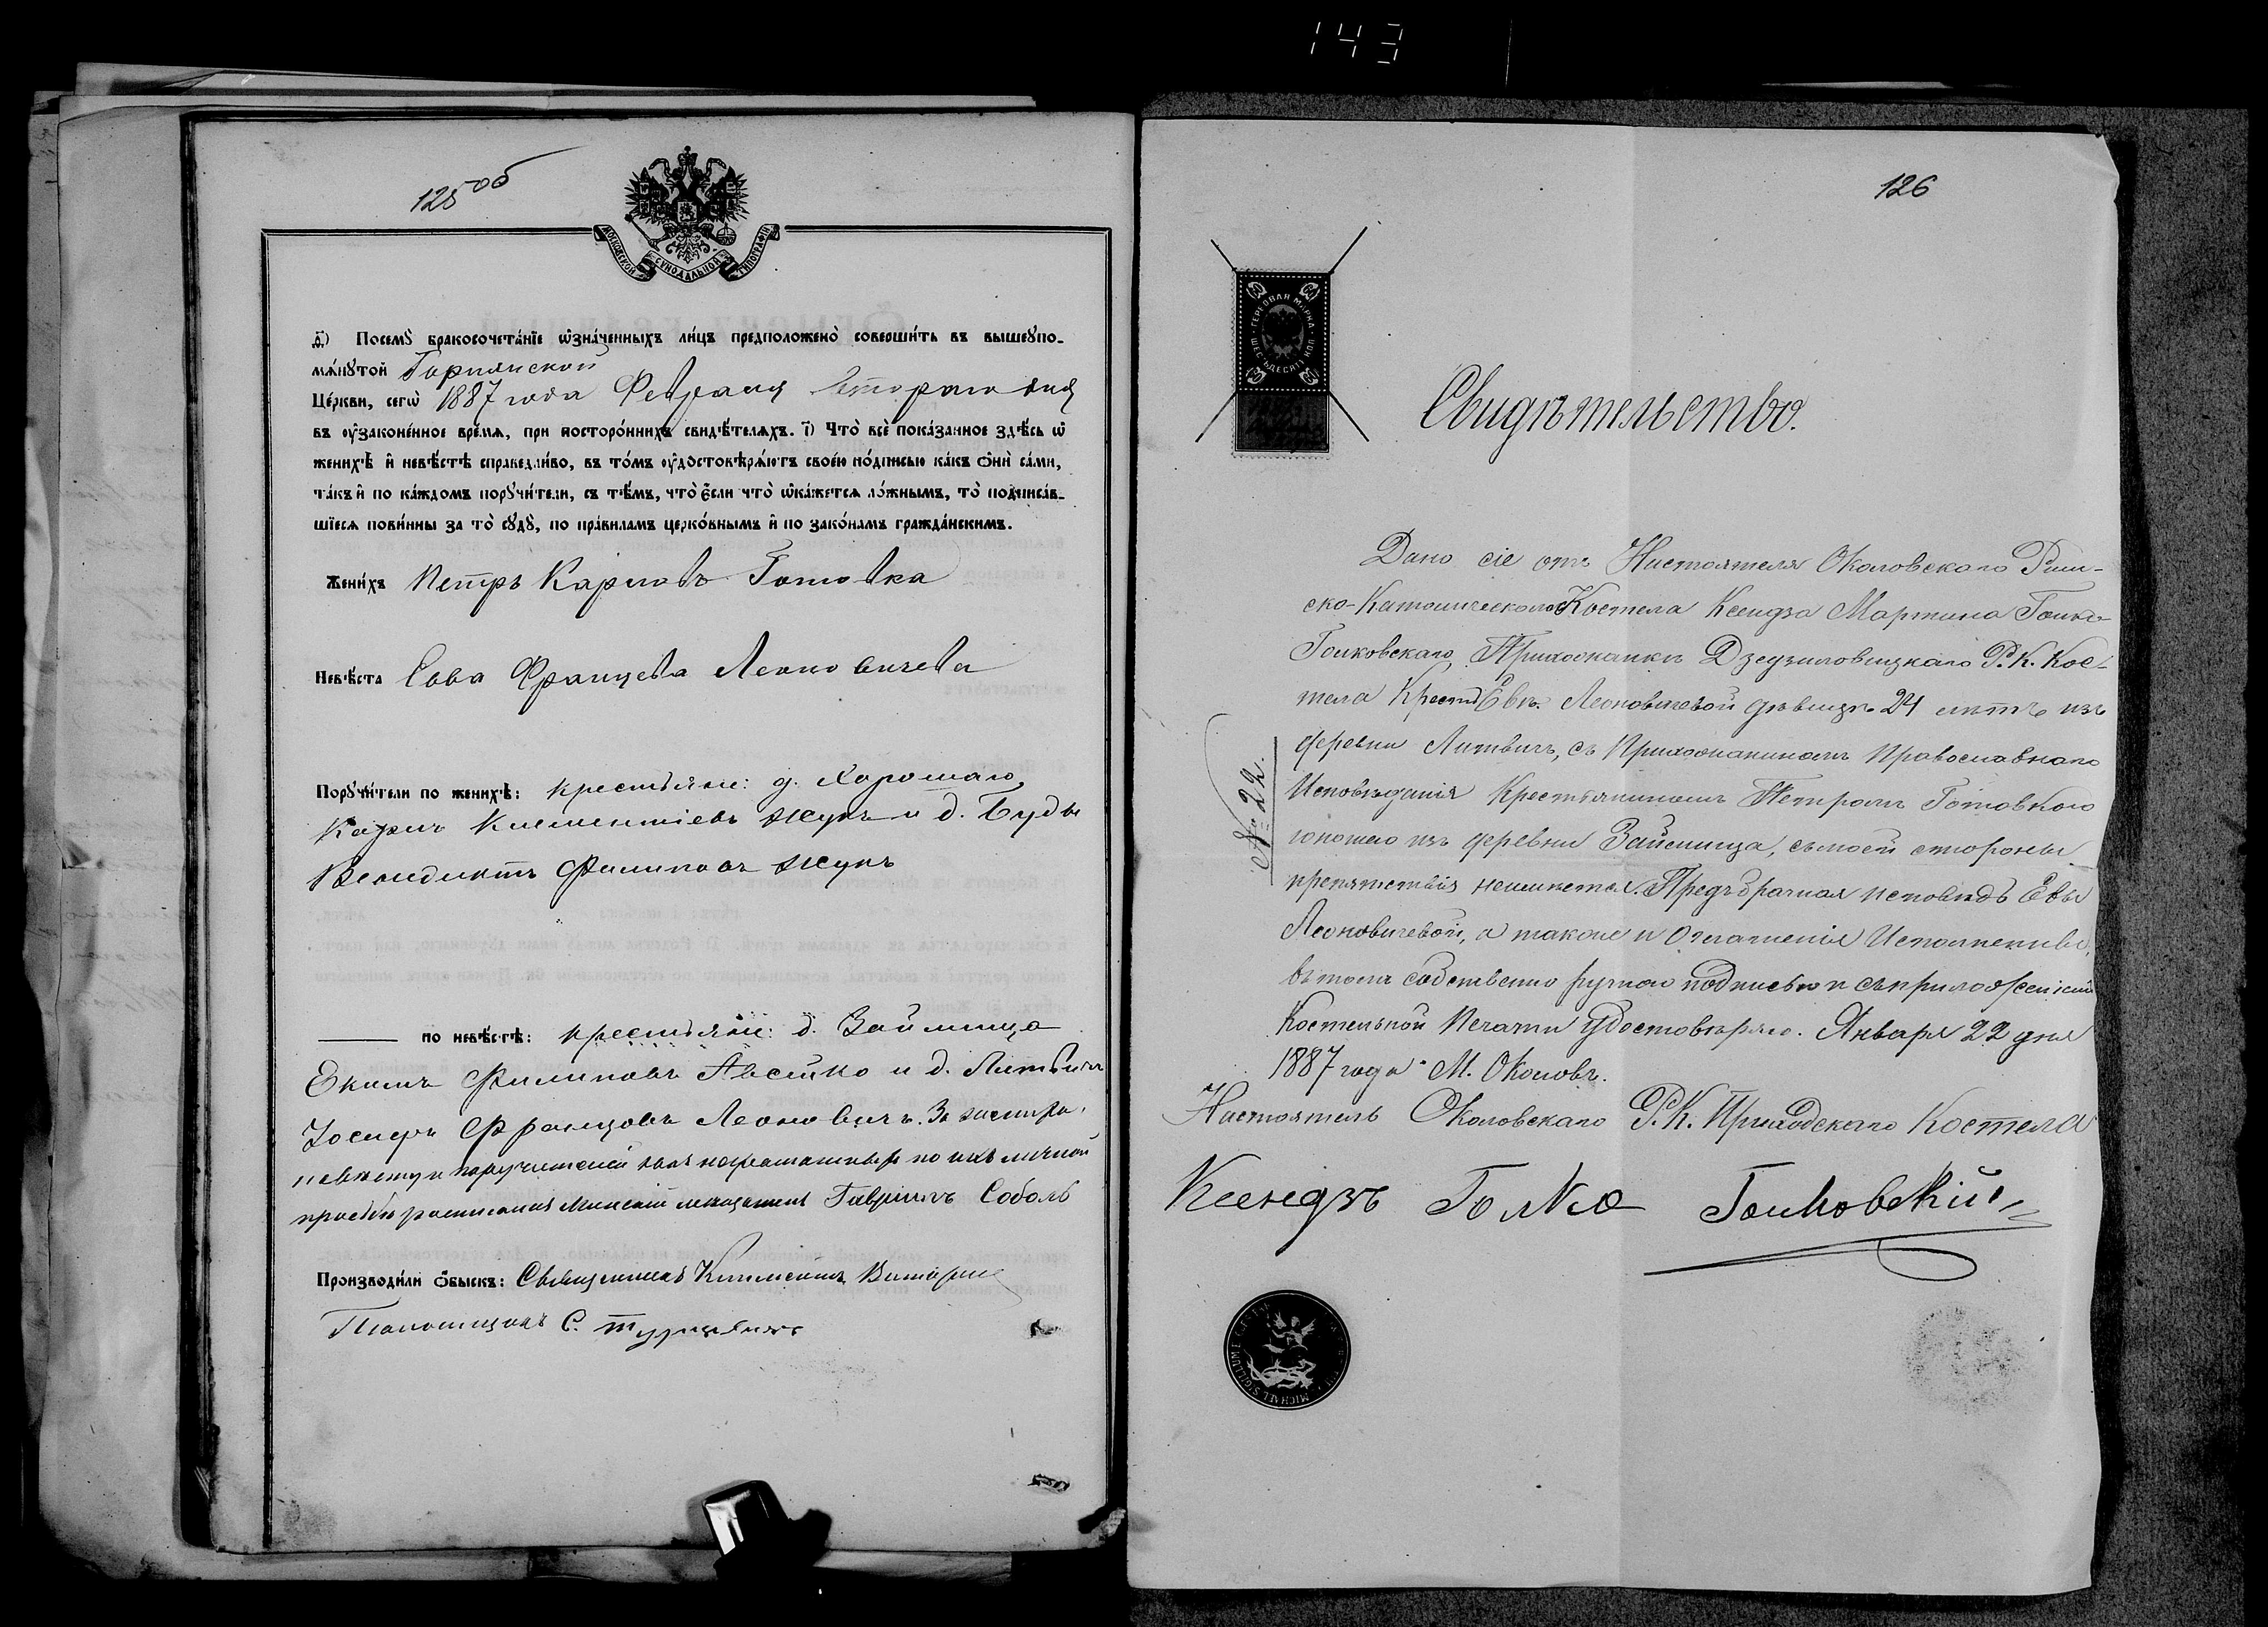 143
125об
МОСКОВСКОЙ СѴНОДАЛЬНОЙ ТИПОГРАФІИ
д҃) Посемꙋ̀ бракосочета́нїе ѡ҆зна́ченныхъ ли́цъ предположено̀ соверши́ть въ вышеꙋпо-
мѧ́нꙋтой
Це́ркви, сегѡ̀ 1887 года Февраля втораго дня
въ ᲂу҆законе́нное вре́мѧ, при посторо́ннихъ свидѣ́телѧхъ. і҃) Что̀ всѐ пока́занное здѣ́сь ѡ҆
женихѣ̀ и҆ невѣ́стѣ справедли́во, въ то́мъ ᲂу҆достовѣрѧ́ютъ свое́ю по́дписью ка́къ ѻ҆нѝ са́ми,
та́къ и҆ по ка́ждомъ порꙋчи́тели, съ тѣ́мъ, что̀ є҆́сли что̀ ѡ҆ка́жетсѧ ло́жнымъ, то̀ подписа́в-
шїесѧ пови́нны за то̀ сꙋдꙋ̀, по пра́виламъ церко́внымъ и҆ по зако́намъ гражда́нскимъ.
Жени́хъ Петръ Карповъ Готовка
Невѣ́ста Евва Францева Леоновичева
Порꙋчи́тели по женихѣ̀: крестьяне: д. Хорошаго,
Карпъ Климентіевъ Жукъ и д. Буды
Венедиктъ Филиповъ Жукъ
по невѣ́стѣ: крестьяне: д. Займища
Екимъ Филиповъ Авсейко и д. Литвичъ
Іосифъ Францовъ Леоновичъ. За жениха,
невѣсту и поручителей неграмотныхъ по ихъ личной
просьбѣ росписался Минскій мѣщанинъ Гавріилъ Соболь
Производи́ли ѻ҆́быскъ: Священникъ Климентъ
Псаломщикъ С.
126
ГЕРБОВАЯ МАРКА
ШЕСТЬДЕСЯТЪ КОП
60
Свидѣтельство.
Дано сіе отъ Настоятеля Околовскаго Рим-
ско-Католическаго Костела Ксендза Мартина Голко-
Голковскаго, Прихожанкѣ Дзедзиловицкаго Р. К. Кос-
тела Крест. Евѣ Леоновичевой дѣвицѣ 24 лѣтъ изъ
деревни Литвичъ, съ Прихожаниномъ Православнаго
Исповѣданія Крестьяниномъ Петромъ Готовкою
юношею изъ деревни Займища, съ моей стороны
препятствія неимѣется. Предъбрачная исповѣдь Евы
Леоновичевой, а также и Оглашенія Исполнены,
въ томъ собственно ручною подписью и съ приложеніемъ
Костельной Печати удостовѣряю. Января 22 дня
1887 года М. Околовъ.
№ 22.
Настоятель Околовскаго Р. К. Приходскаго Костела
Ксендзъ Голко Голковскій
MICHAEL SIGILLUM